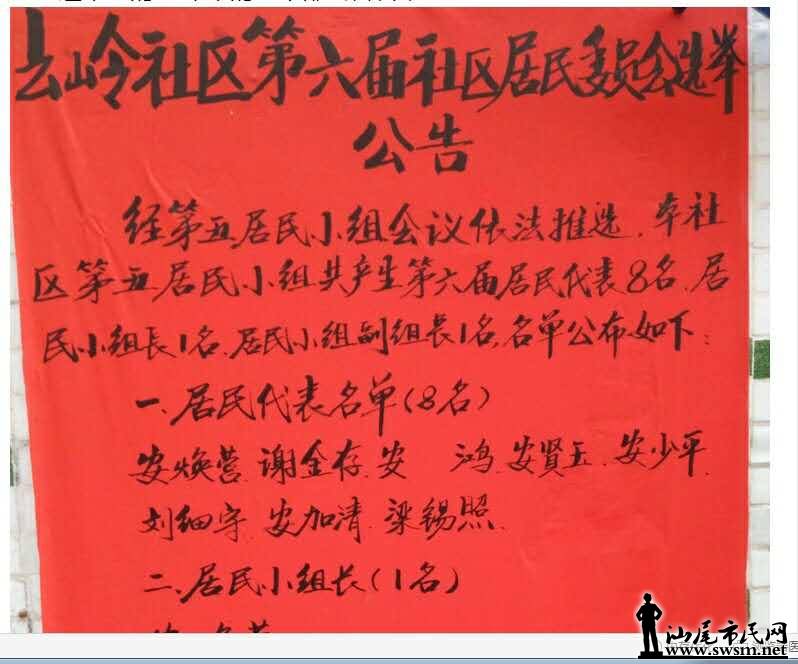 云岭社区第六届社区居民委员会选举
公告
经第五居民小组会议依法推选,本社
区第五居民小组共产生第六届居民代表8名,居
民小组长1名,居民小组副组长1名,名单公布如下:
一、居民代表名单(8名)
安焕营 谢金存 安 鸿 安贤玉 安少平
刘细宇 安加清 梁锡照
二、居民小组长(1名)
汕尾市民网
www.swsm.net